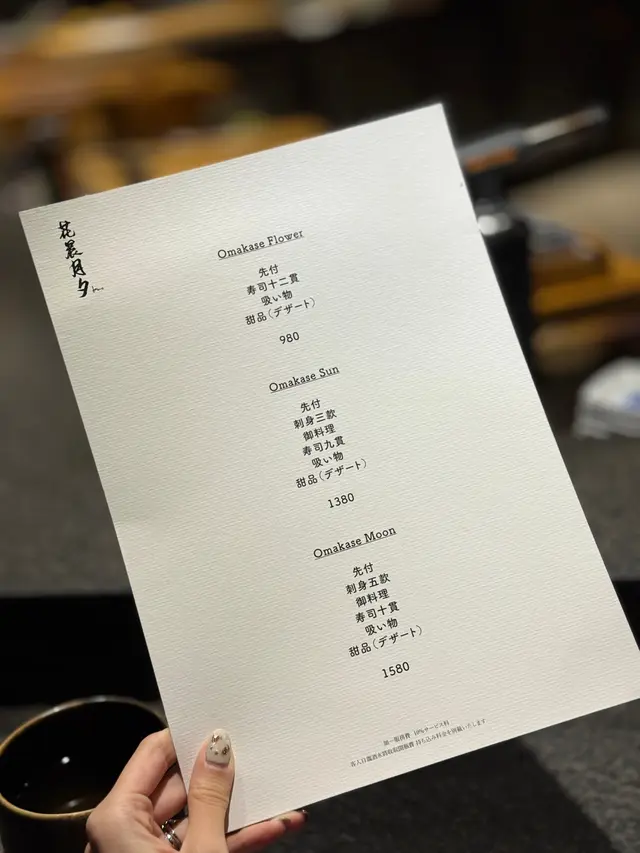 花晨月夕
Omakase Flower
先付
寿司十二貫
吸い物
甜品(デザート)
980
Omakase Sun
先付
刺身三款
御料理
寿司九貫
吸い物
甜品(デザート)
1380
Omakase Moon
先付
刺身五款
御料理
寿司十貫
吸い物
甜品(デザート)
1580
加一服務費 10%サービス料